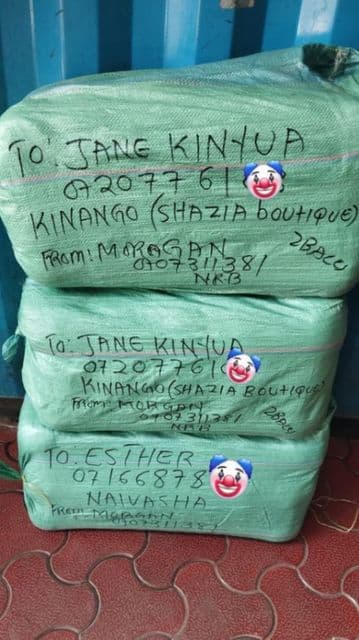 TO: JANE KINYUA
07207761
KINANGO (SHAZIA bOUTIQUE)
FROM: MORGAN 2BALE
0707311381
NRB
To: JANE KINYUA
07207761
KINANGO (SHAZIA BOUTIQUE)
From: MORGAN
0707311381
NRB
TO: ESTHER
07166878
NAIVASHA
From: MORGAN